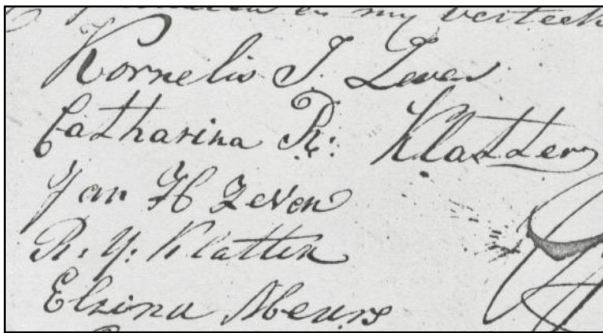 en my verteek
Kornelis J. Zeven
Catharina R: Klatter
Jan H Zeven
R. Y: Klatter
Elzina Meurs